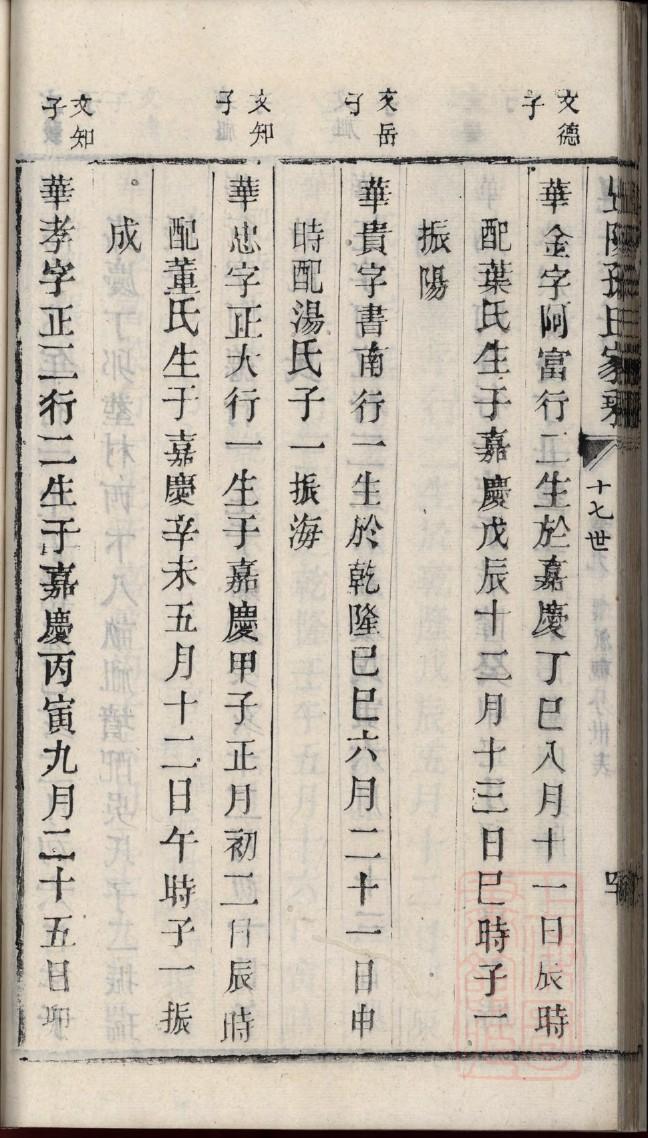 陽孫氏家乘
十七世
文德子
華金字阿富行二生於嘉慶丁巳八月十一日辰時
配葉氏生于嘉慶戊辰十二月十三日巳時子一
振陽
文岳子
華貴字書南行二生於乾隆己巳六月二十二日申
時配湯氏子一振海
文知子
華忠字正大行一生于嘉慶甲子正月初二日辰時
配董氏生于嘉慶辛未五月十二日午時子一振
成
文知子
華孝字正三行二生于嘉慶丙寅九月二十五日卯